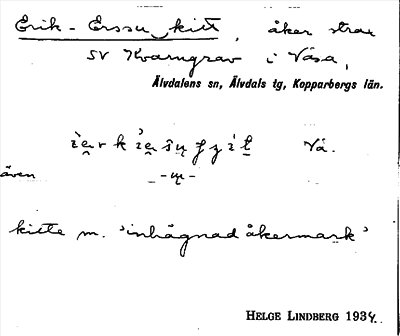 Erik-Erssu kitt, åker strax
SV Kvarngrav i Våsa,
Älvdalens sn, Älvdals tg, Kopparbergs län.
Vå.
även
kitte m. 'inhägnad åkermark'
HELGE LINDBERG 1934.